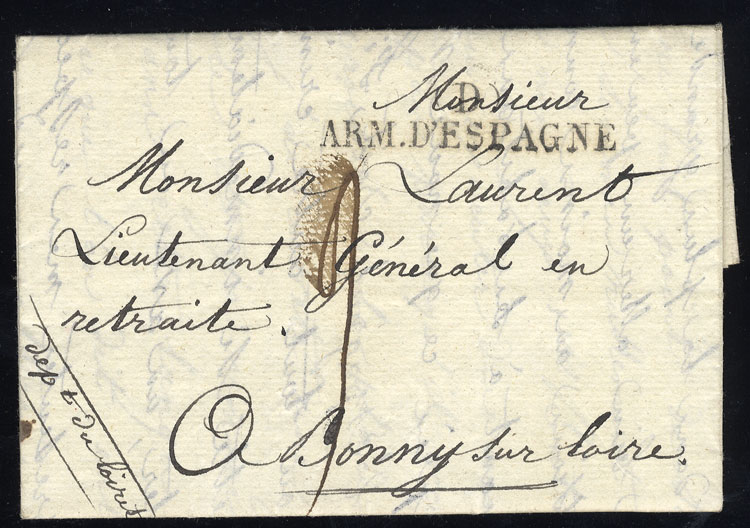 Monsieur
D
ARM. D'ESPAGNE
Monsieur Laurent
Lieutenant Général en
retraite.
A Bonny sur Loire.
dep t. du loiret